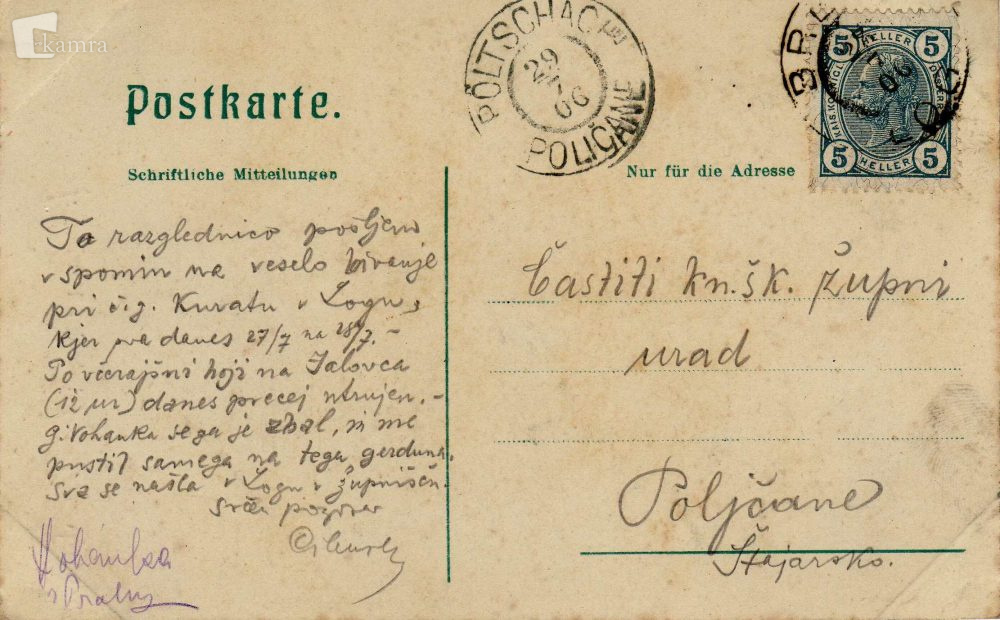 kamra
Postkarte.
Schriftliche Mitteilungen
Nur für die Adresse
PÖLTSCHACH
29
7
06
POLIČANE
BRE
7
06
5 HELLER 5
5 HELLER 5
To razglednico pošljem
v spomin na veselo bivanje
pri č. g. Kuratu v Logu,
kjer sva danes 27/7 na 28/7. –
Po včerajšni hoji na Jalovca
(12 ur) danes precej utrujen. –
g. Vohanka se ga je zbal, ni me
pustil samega na tega gerduna.
Sva se našla v Logu v župnišču.
Srčen pozdrav
Vohanka
z Prahy
Častiti kn. šk. župni
urad
Poljčane
Štajarsko.